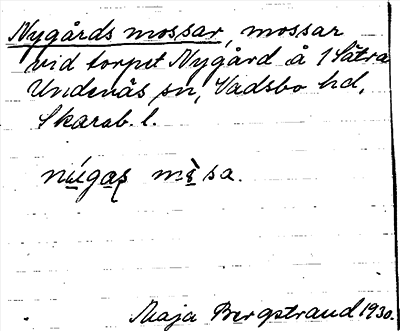 Nygårds mossar, mossar
vid torpet Nygård å 1 Sätra
Undenäs sn, Vadsbo hd,
Skarab. l.
Maja Bergstrand 1930.